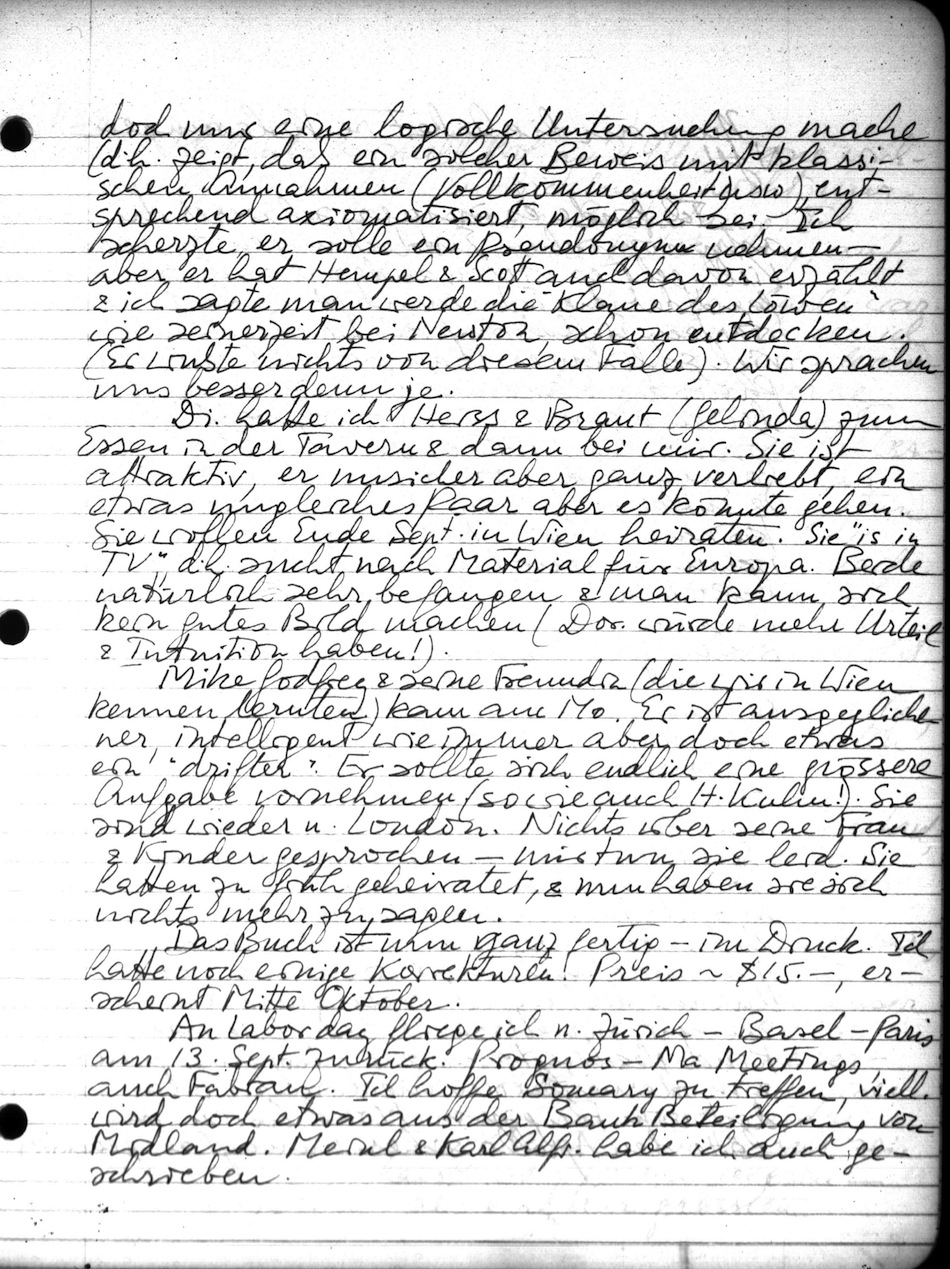 doch nur eine logische Untersuchung mache
(d.h. zeigt, daß ein solcher Beweis mit klassi-
schen Annahmen (Vollkommenheit usw), ent-
sprechend axiomatisiert, möglich sei. Ich
scherzte, er solle ein Pseudonym nehmen –
aber er hat Hempel & Scott auch davon erzählt
& ich sagte man werde die "Klaue des Löwen"
wie seinerzeit bei Newton schon entdecken.
(Er wußte nichts von diesem Falle). Wir sprachen
uns besser denn je.
Di. hatte ich Herss & Braut (Gelinda) zum
Essen in der Tavern & dann bei mir. Sie ist
attraktiv, er unsicher aber ganz verliebt, ein
etwas ungleiches Paar aber es könnte gehen.
Sie wollen Ende Sept. in Wien heiraten. Sie "is in
TV", d.h. sucht nach Material für Europa. Beide
natürlich sehr befangen & man kann sich
kein gutes Bild machen (Dor. würde mehr Urteil
& Intuition haben!).
Mike Godfrey & seine Freundin (die wir in Wien
kennen lernten) kam am Mo. Er ist ausgegliche-
ner, intelligent wie immer aber doch etwas
ein "drifter". Er sollte sich endlich eine grössere
Aufgabe vornehmen (so wie auch H. Kuhn!). Sie
sind wieder n. London. Nichts über seine Frau
& Kinder gesprochen – mir tun sie leid. Sie
hatten zu früh geheiratet, & nun haben sie sich
nichts mehr zu sagen.
Das Buch ist nun ganz fertig – im Druck. Ich
hatte noch einige Korrekturen! Preis ~ $15.–, er-
scheint Mitte Oktober.
An Labor day fliege ich n. Zürich – Basel – Paris
am 13. Sept. zurück. Prognos – Ma Meetings,
auch Fabian. Ich hoffe Somary zu treffen, viell.
wird doch etwas aus der Bank Beteiligung von
Midland. Meinl & Karl Alfr. habe ich auch ge-
schrieben.